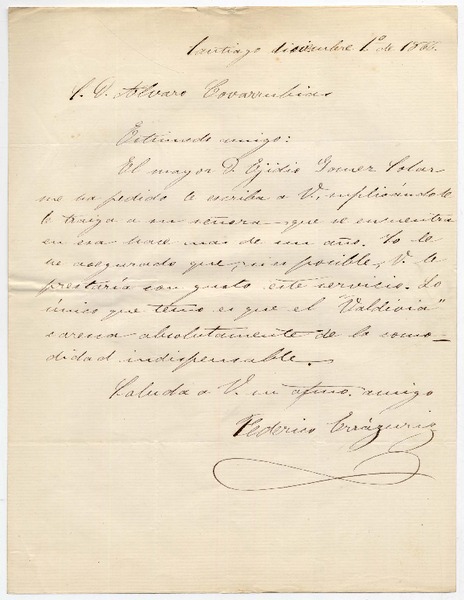 Santiago diciembre 1º de
S. D. Alvaro Covarrubias
Estimado amigo:
El mayor D. Ejidio Gomez Solar
me ha pedido le escriba a V. suplicándole
le traiga a su señora que se encuentra
en esa hace mas de un año. Yo le
he asegurado que, si es posible, V. le
prestaría con gusto este servicio. Lo
único que temo es que el "Valdivia"
caresca absolutamente de la como-
didad indispensable.
Saluda a V. su afmo. amigo
Federico Errázuriz